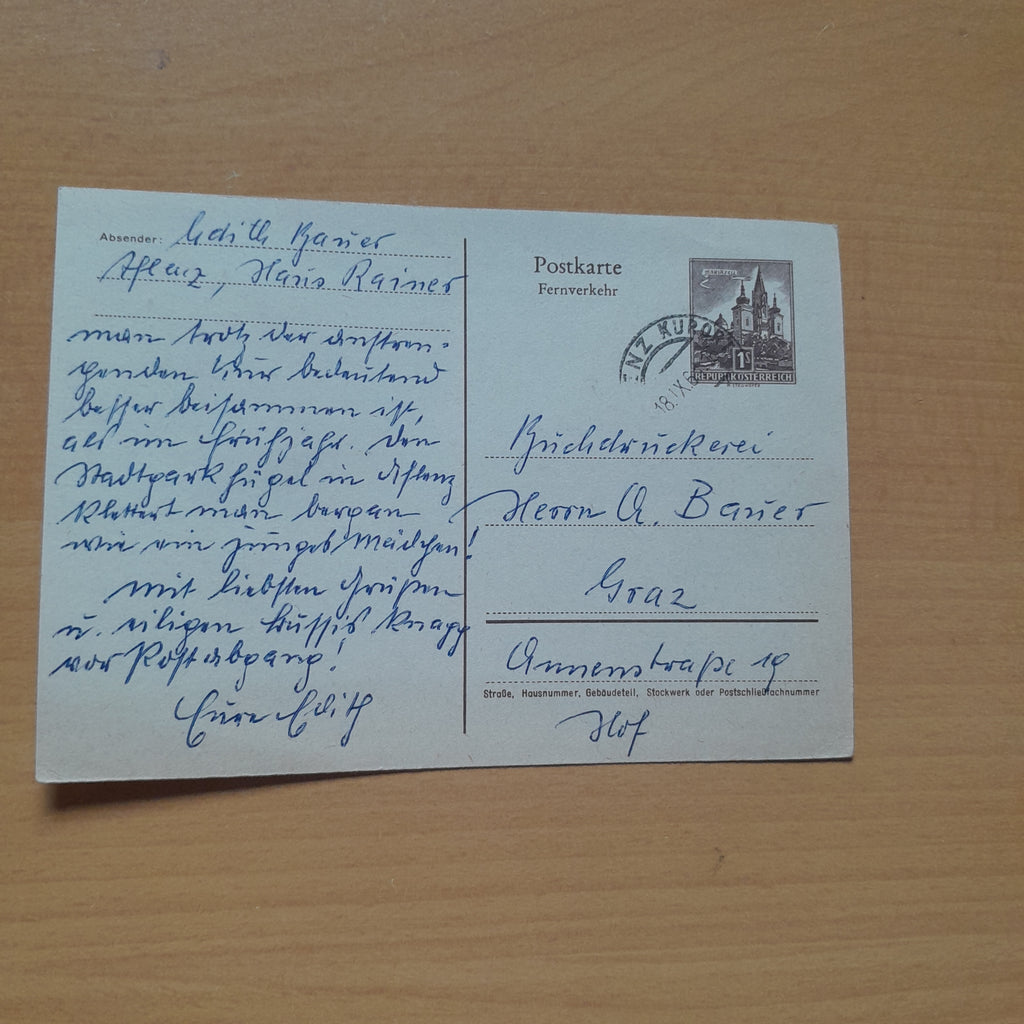 Absender: Edith Bauer
Aflenz, Haus Rainer
man trotz der anstren-
genden Kur bedeutend
besser beisammen ist,
als im Frühjahr. Den
Stadtparkhügel in Aflenz
klettert man bergan
wie ein junges Mädchen!
Mit liebsten Grüßen
u. eiligen Bussis knapp
vor Postabgang!
Eure Edith
Postkarte
Fernverkehr
MARIAZELL
1S
REPUBLIK ÖSTERREICH
ENZ KURO
18.IX.6
Buchdruckerei
Herrn A. Bauer
Graz
Annenstraße 19
Straße, Hausnummer, Gebäudeteil, Stockwerk oder Postschließfachnummer
Hof